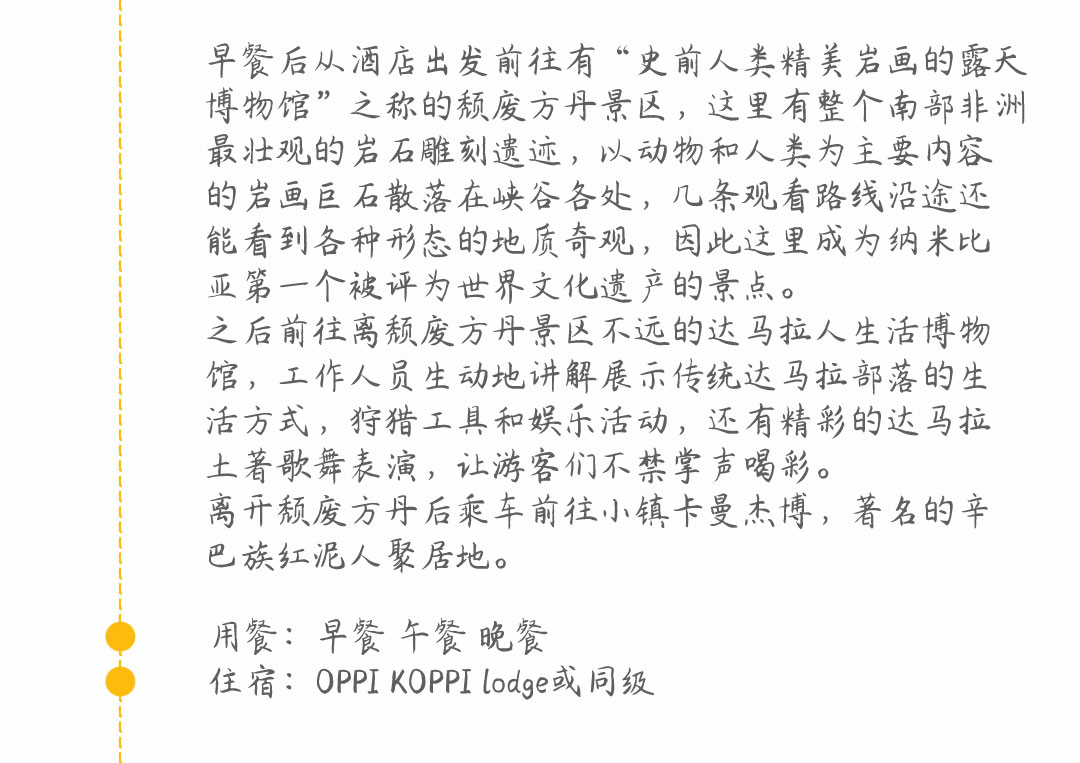 早餐后从酒店出发前往有“史前人类精美岩画的露天
博物馆”之称的颓废方丹景区，这里有整个南部非洲
最壮观的岩石雕刻遗迹，以动物和人类为主要内容
的岩画巨石散落在峡谷各处，几条观看路线沿途还
能看到各种形态的地质奇观，因此这里成为纳米比
亚第一个被评为世界文化遗产的景点。
之后前往离颓废方丹景区不远的达马拉人生活博物
馆，工作人员生动地讲解展示传统达马拉部落的生
活方式，狩猎工具和娱乐活动，还有精彩的达马拉
土著歌舞表演，让游客们不禁掌声喝彩。
离开颓废方丹后乘车前往小镇卡曼杰博，著名的辛
巴族红泥人聚居地。
用餐：早餐 午餐 晚餐
住宿：OPPI KOPPI lodge或同级